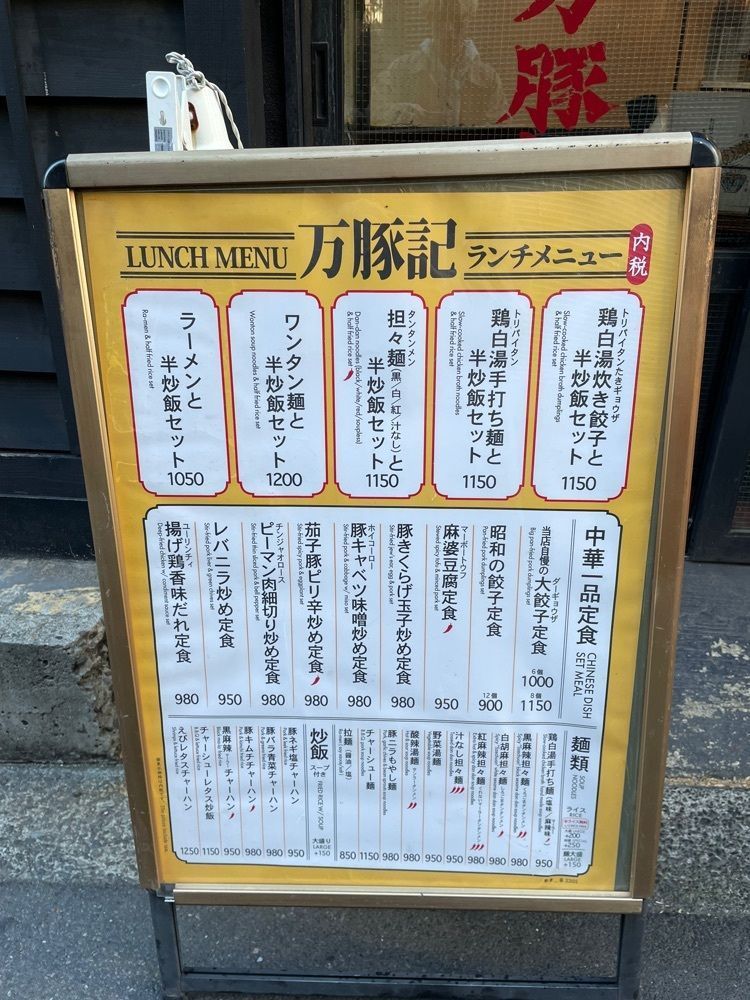 万豚
LUNCH MENU 万豚記 ランチメニュー 内税
トリパイタンたきギョウザ
鶏白湯炊き餃子と
半炒飯セット
Slow-cooked chicken broth dumplings
& half fried rice set
1150
トリパイタン
鶏白湯手打ち麺と
半炒飯セット
Slow-cooked chicken broth noodles
& half fried rice set
1150
タンタンメン
担々麺(黒/白/紅/汁なし)と
半炒飯セット
Dan-dan noodles (black/white/red/soupless)
& half fried rice set
1150
ワンタン麺と
半炒飯セット
Wonton soup noodles & half fried rice set
1200
ラーメンと
半炒飯セット
Ra-men & half fried rice set
1050
中華一品定食
CHINESE DISH
SET MEAL
当店自慢の大餃子定食
ダーギョウザ
Big pan-fried pork dumplings set
6個 1000
8個 1150
昭和の餃子定食
Pan-fried pork dumplings set
12個 900
マーボートウフ
麻婆豆腐定食
Stewed spicy tofu & minced pork set
950
豚きくらげ玉子炒め定食
980
ホイコーロー
豚キャベツ味噌炒め定食
Stir-fried pork & cabbage w/ miso set
980
茄子豚ピリ辛炒め定食
Stir-fried spicy pork & eggplant set
980
チンジャオロース
ピーマン肉細切り炒め定食
Stir-fried thin sliced pork & bell pepper set
980
レバニラ炒め定食
Stir-fried pork liver & green chives set
950
ユーリンチィ
揚げ鶏香味だれ定食
Deep-fried chicken w/ condiment sauce set
980
麺類
SOUP
NOODLES
ライス
RICE
+200
+250
麺大盛
LARGE
+150
鶏白湯手打ち麺(塩味/麻辣味)
950
黒麻辣担々麺
980
白胡麻担々麺
980
紅麻辣担々麺
980
汁なし担々麺
950
野菜湯麺
950
酸辣湯麺
980
豚ニラもやし麺
980
チャーシュー麺
1150
拉麺(醤油/塩)
850
炒飯
スープ付き
FRIED RICE W/ SOUP
大盛り
LARGE
+150
豚ネギ塩チャーハン
950
豚バラ青菜チャーハン
980
豚キムチチャーハン
980
黒麻辣チャーハン
950
チャーシューレタス炒飯
1150
えびレタスチャーハン
1250